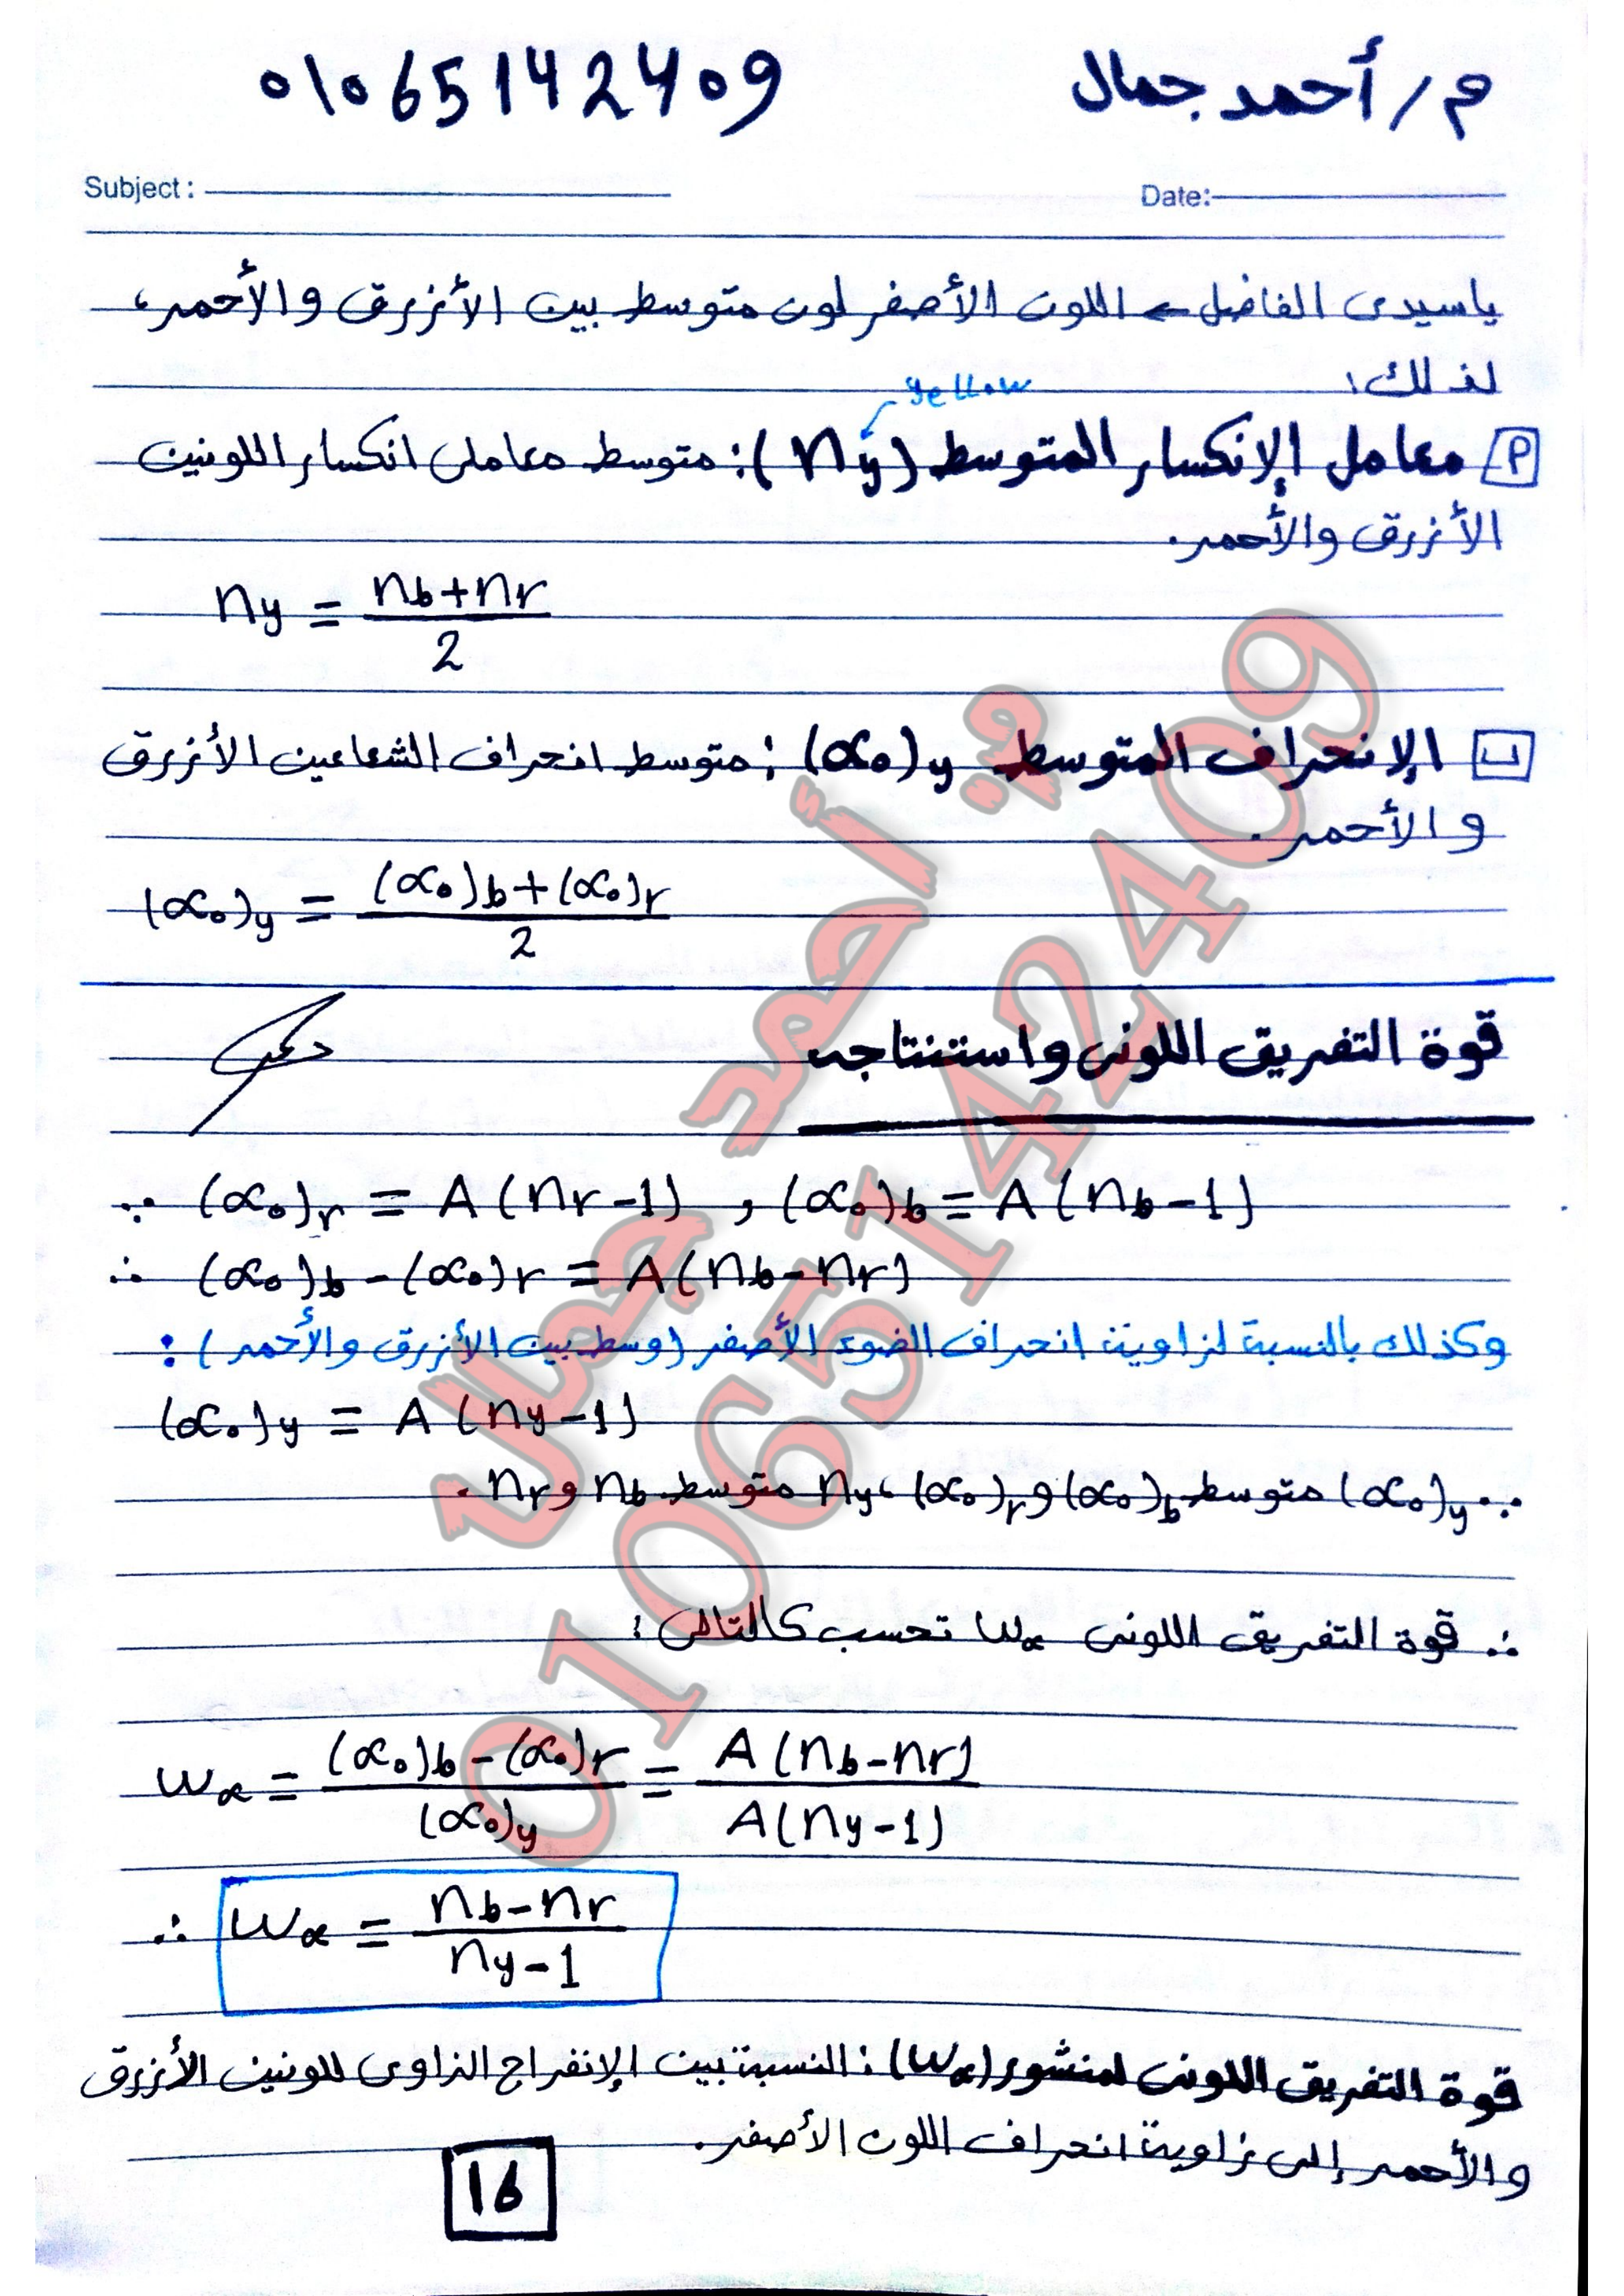 م/ أحمد جمال 01065142409
Subject: Date:
يا سيدى الفاضل ← اللون الأصفر لون متوسط بين الأزرق والأحمر،
لذلك:
yellow
أ معامل الإنكسار المتوسط (ny): متوسط معاملى انكسار اللونين
الأزرق والأحمر.
ny = (nb+nr)/2
ب الإنحراف المتوسط (α₀)y : متوسط انحراف الشعاعين الأزرق
والأحمر.
(α₀)y = ((α₀)b+(α₀)r)/2
قوة التفريق اللونى واستنتاجه
∵ (α₀)r = A(nr-1) , (α₀)b = A(nb-1)
∴ (α₀)b - (α₀)r = A(nb-nr)
وكذلك بالنسبة لزاوية انحراف الضوء الأصفر (وسط بين الأزرق والأحمر) :
(α₀)y = A(ny-1)
∵ (α₀)y متوسط (α₀)b و (α₀)r ، ny متوسط nb و nr .
∴ قوة التفريق اللونى ωα تحسب كالتالى :
ωα = ((α₀)b - (α₀)r)/(α₀)y = A(nb-nr)/A(ny-1)
∴ ωα = (nb-nr)/(ny-1)
قوة التفريق اللونى لمنشور (ωα) : النسبة بين الإنفراج الزاوى للونين الأزرق
والأحمر إلى زاوية انحراف اللون الأصفر.
16
م/ أحمد جمال
01065142409